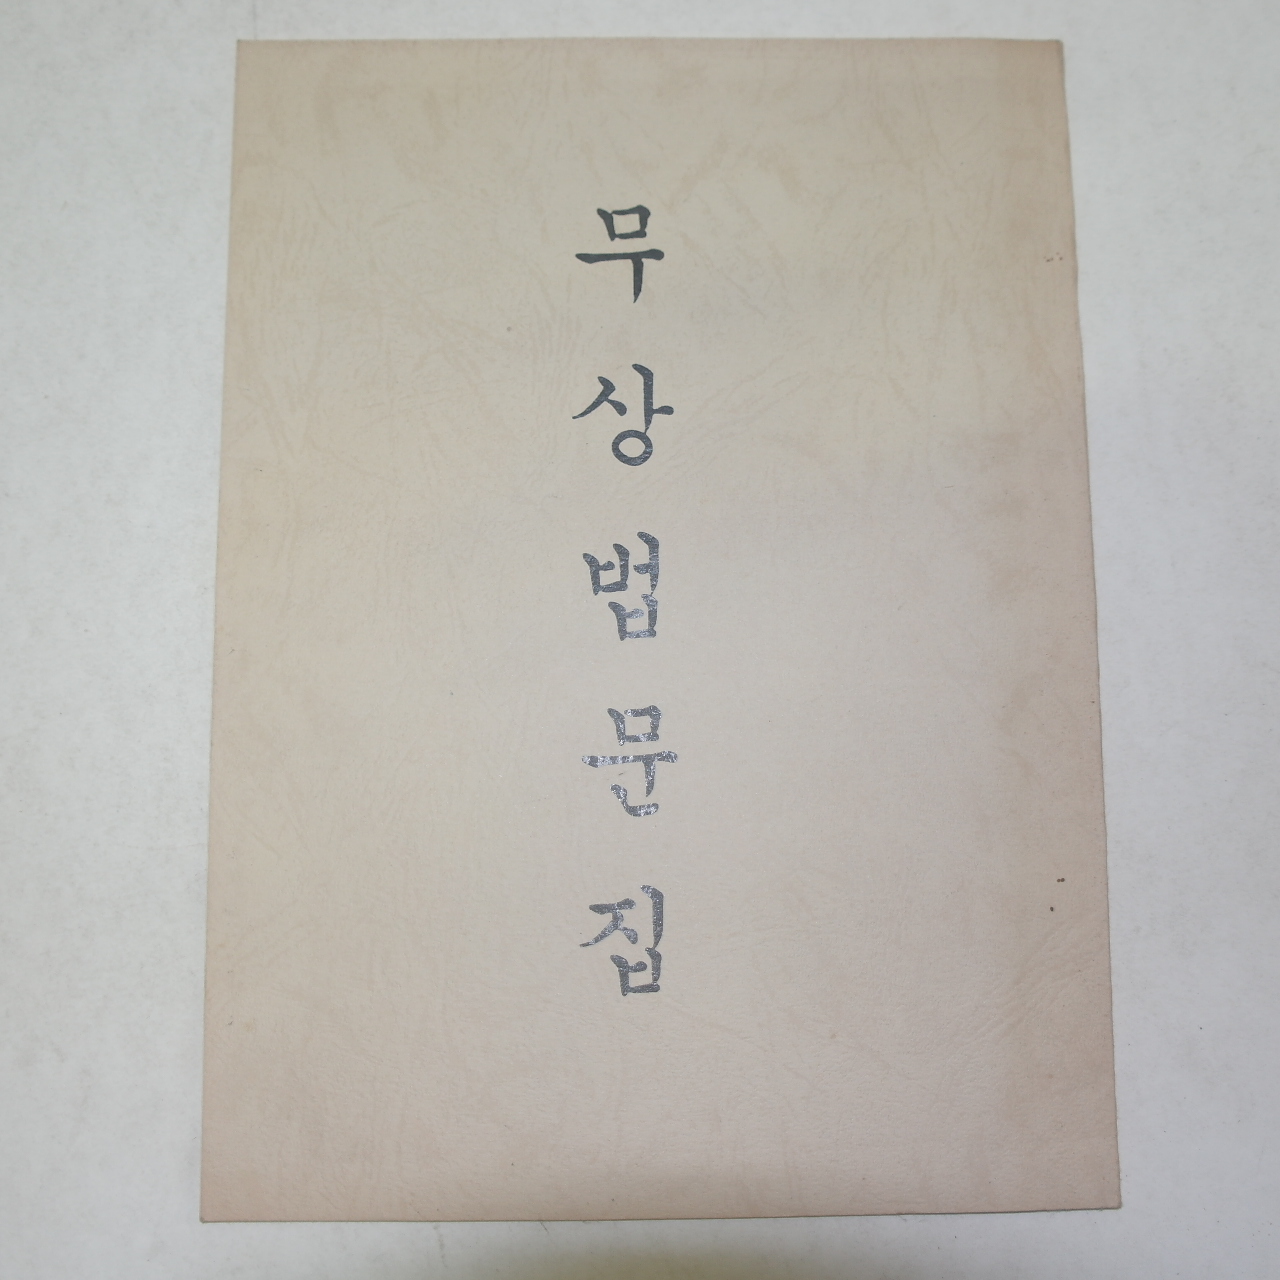 무상법문집